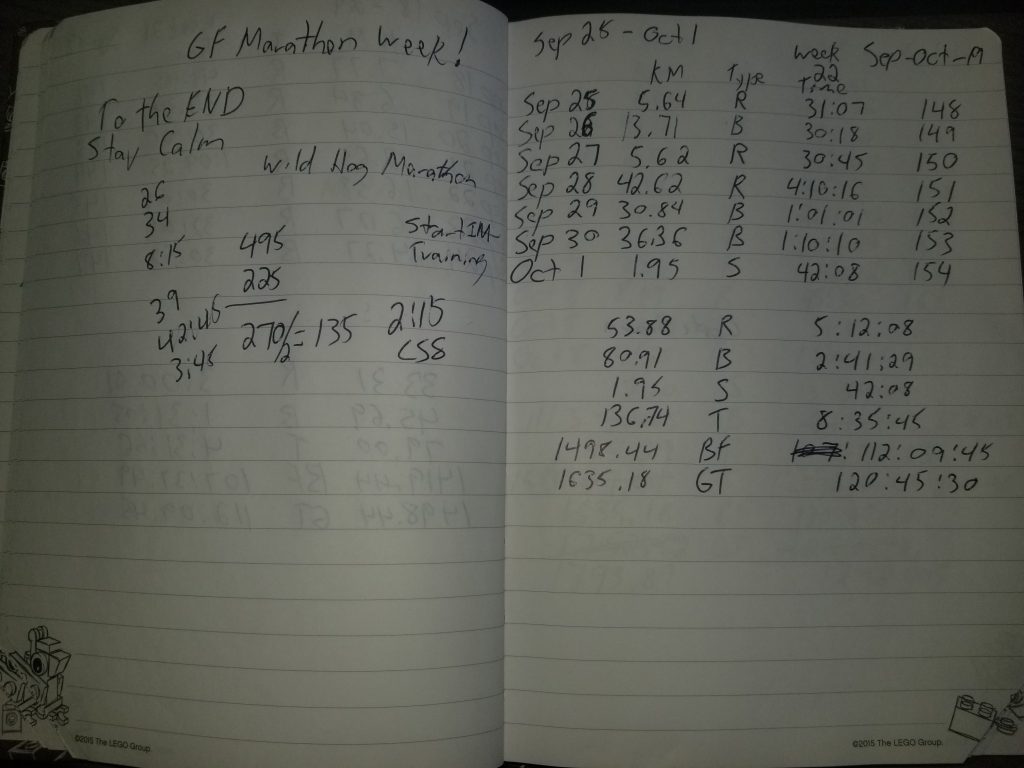 GF Marathon Week!
To the END
Stay Calm
Wild Hog Marathon
26
34
8:15 495 Start IM-
225 Training
39
42:45 270/2 = 135 2:15
3:45 CSS
©2015 The LEGO Group.
Sep 25 - Oct 1
Week 22 Sep-Oct-19
KM Type Time
Sep 25 5.64 R 31:07 148
Sep 26 13.71 B 30:18 149
Sep 27 5.62 R 30:45 150
Sep 28 42.62 R 4:10:16 151
Sep 29 30.84 B 1:01:01 152
Sep 30 36.36 B 1:10:10 153
Oct 1 1.95 S 42:08 154
53.88 R 5:12:08
80.91 B 2:41:29
1.95 S 42:08
136.74 T 8:35:45
1498.44 BF 112:09:45
1635.18 GT 120:45:30
©2015 The LEGO Group.